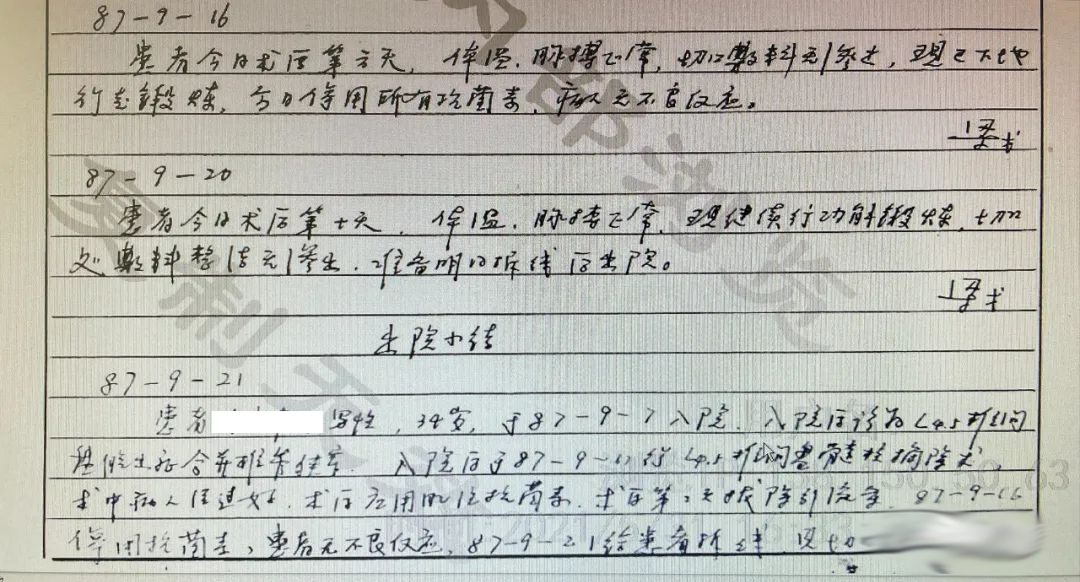 87-9-16
患者今日术后第六天，体温、脉搏正常，切口敷料无渗出，现已下地
行走锻炼，今日停用所有抗菌素，病人无不良反应。
87-9-20
患者今日术后第十天，体温、脉搏正常，现继续行功能锻炼，切口
处敷料整洁无渗出，准备明日拆线后出院。
出院小结
87-9-21
患者 男性，34岁，于87-9-7入院，入院后诊为L4.5椎间
盘脱出症合并椎管狭窄，入院后于87-9-10行L4.5椎间盘髓核摘除术，
术中病人经过好，术后应用肌注抗菌素，术后第2天拔除引流条，87-9-16
停用抗菌素，患者无不良反应，87-9-21给患者拆线，见切
复制无效
部浏览